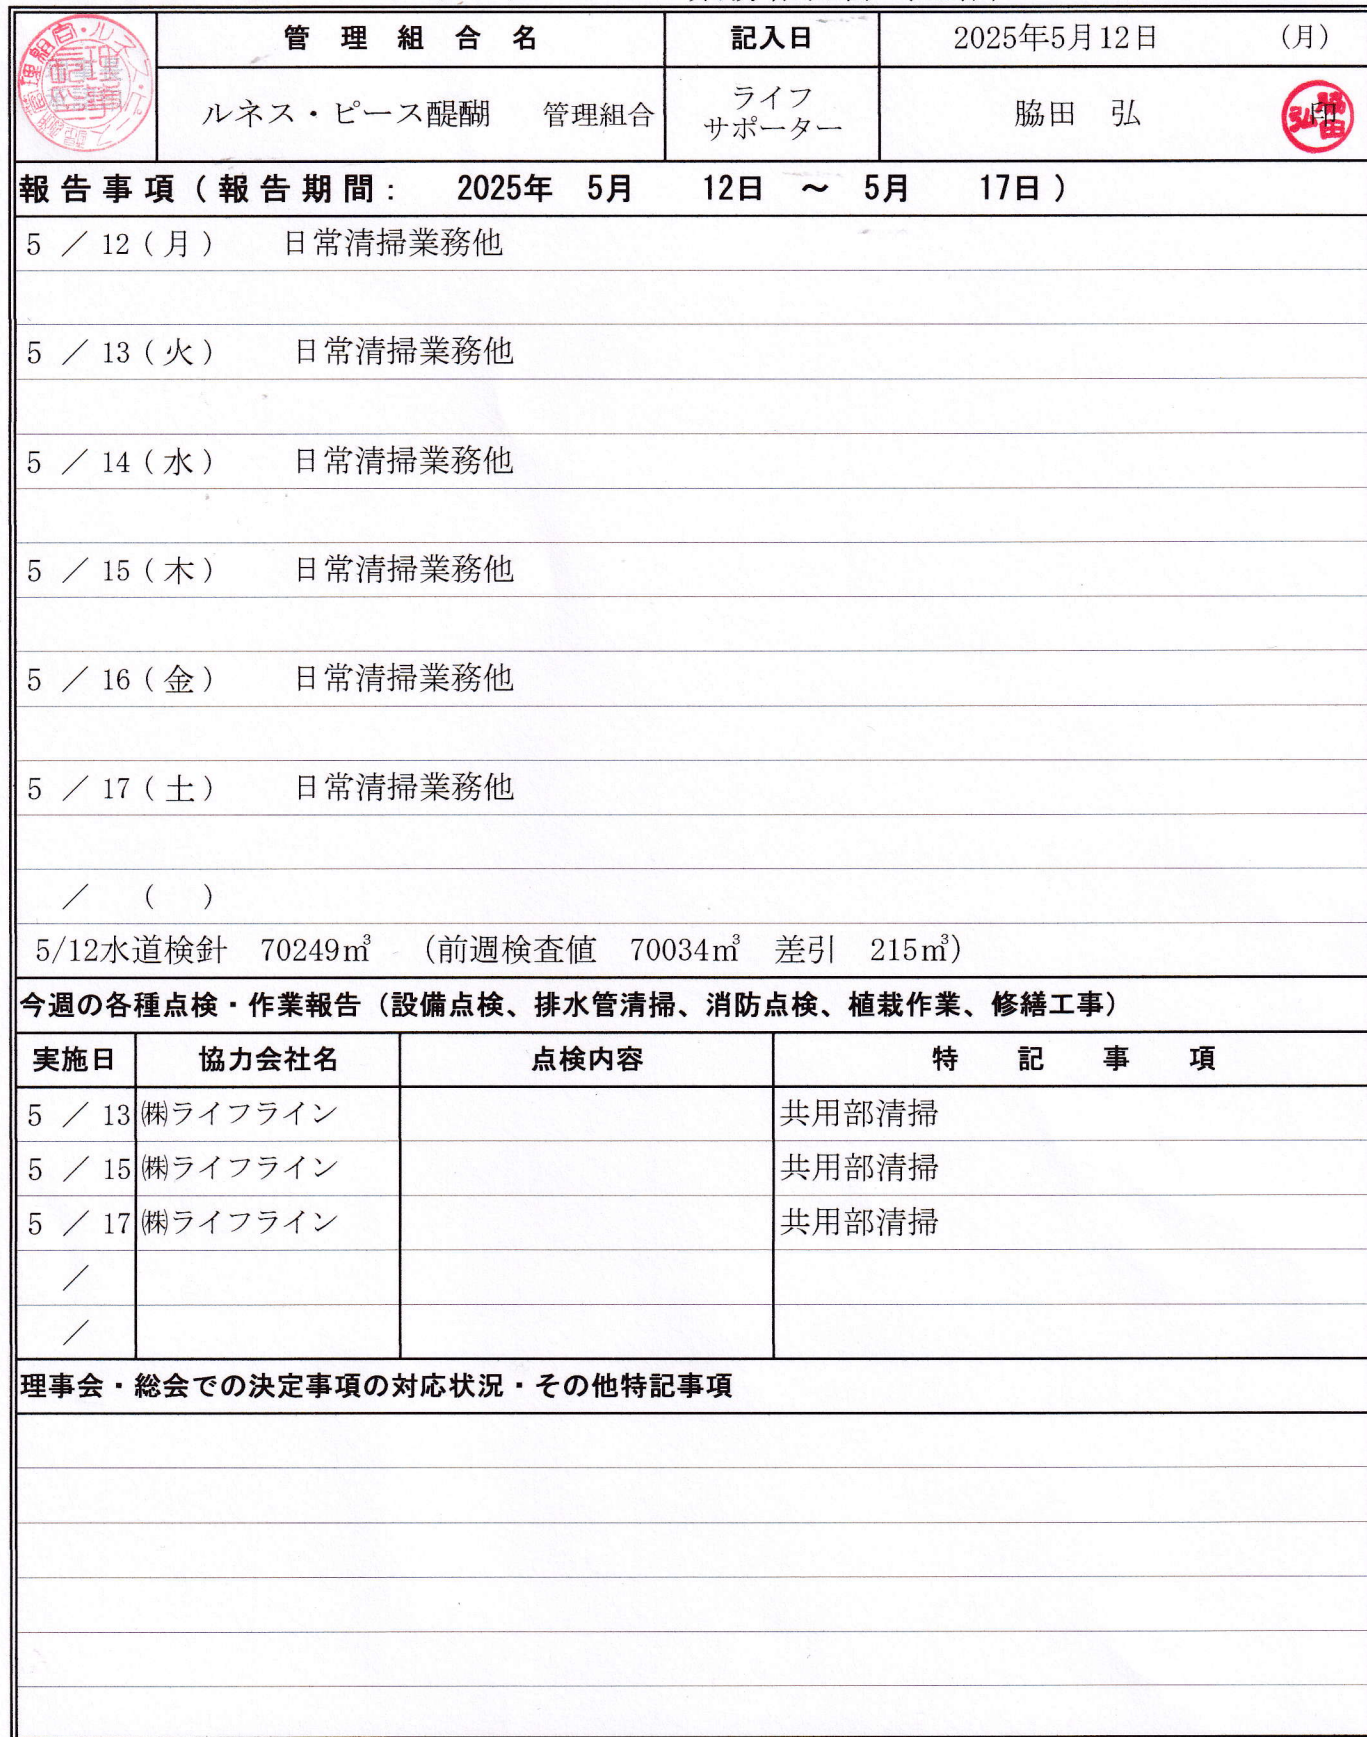 管理組合名 記入日 2025年5月12日 (月)
ルネス・ピース醍醐 管理組合 ライフサポーター 脇田 弘 印
報告事項(報告期間: 2025年 5月 12日 ～ 5月 17日)
5 / 12(月) 日常清掃業務他
5 / 13(火) 日常清掃業務他
5 / 14(水) 日常清掃業務他
5 / 15(木) 日常清掃業務他
5 / 16(金) 日常清掃業務他
5 / 17(土) 日常清掃業務他
/ ( )
5/12水道検針 70249㎥ (前週検査値 70034㎥ 差引 215㎥)
今週の各種点検・作業報告(設備点検、排水管清掃、消防点検、植栽作業、修繕工事)
実施日 協力会社名 点検内容 特記事項
5 / 13 ㈱ライフライン 共用部清掃
5 / 15 ㈱ライフライン 共用部清掃
5 / 17 ㈱ライフライン 共用部清掃
/
/
理事会・総会での決定事項の対応状況・その他特記事項